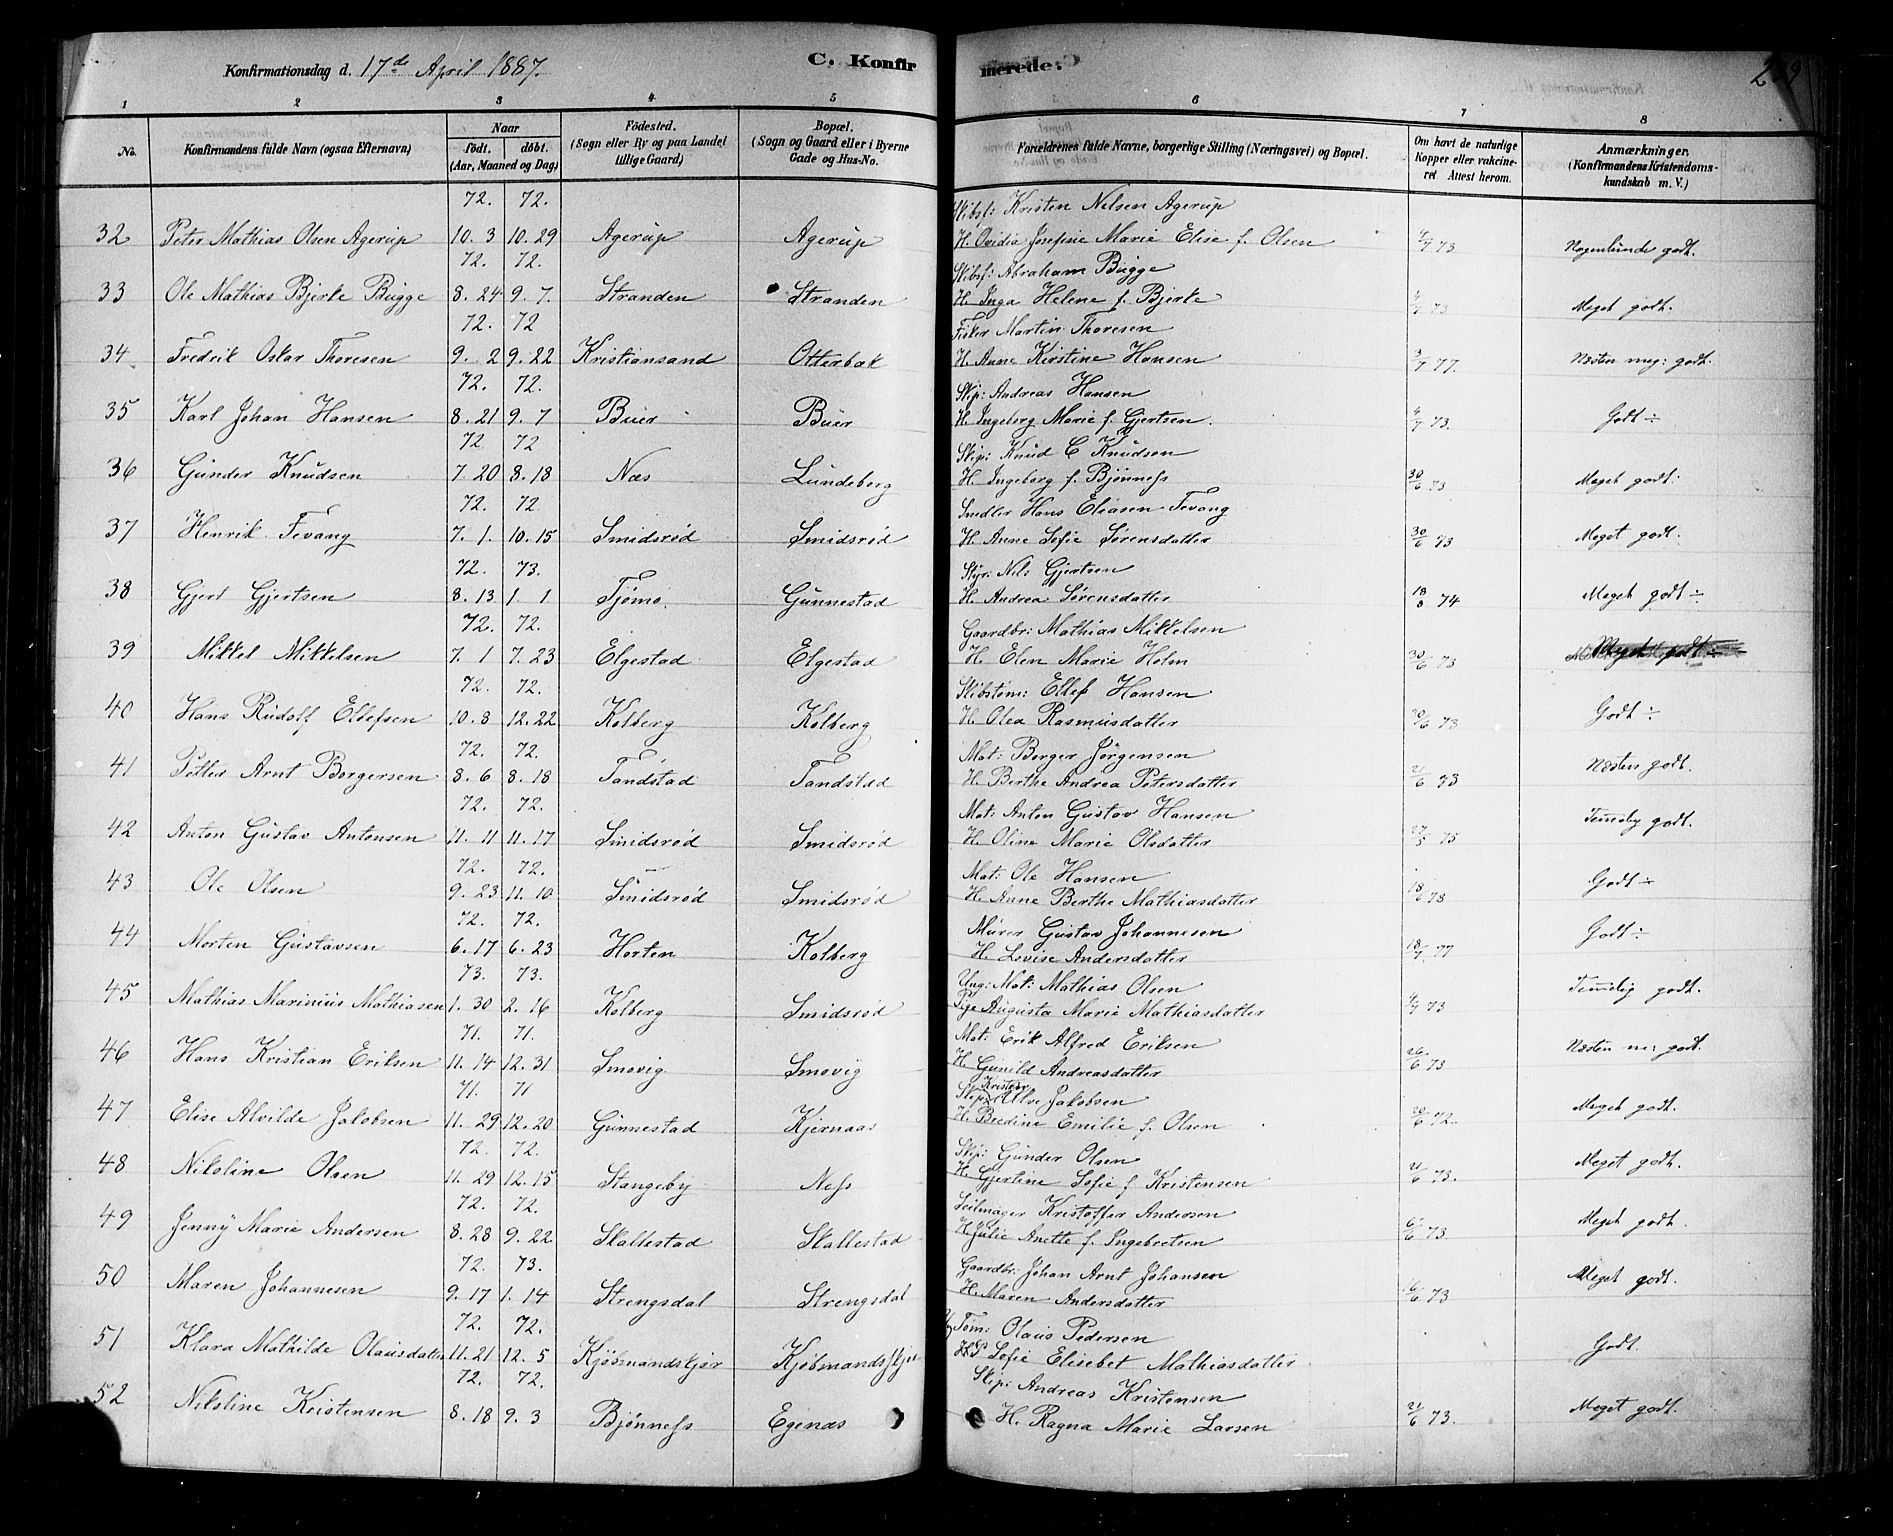 Konfirmationsdag d. 17de April 1887.
C. Konfirmerede.
239
1 2 3 4 5 6 7 8
No.
Konfirmandens fulde Navn (ogsaa Efternavn)
Naar
født. døbt.
(Aar, Maaned og Dag)
Fødested.
(Sogn eller By og paa Landet tillige Gaard)
Bopæl.
(Sogn og Gaard eller i Byerne Gade og Hus-No.
Forældrenes fulde Navne, borgerlige Stilling (Næringsvei) og Bopæl.
Om havt de naturlige Kopper eller vakcineret Attest herom.
Anmærkninger,
(Konfirmandens Kristendomskundskab m. V.)
72. 72. Skibsf: Kristen Nilsen Agerup
32 Peter Mathias Olsen Agerup 10. 3 10. 29 Agerup Agerup H. Ovidia Josefine Marie Elise f. Olsen 4/7 73 Nogenlunde godt.
72. 72. Skibsf: Abraham Bugge
33 Ole Mathias Bjerke Bugge 8. 24 9. 7. Stranden Stranden H. Inga Helene f. Bjerke 4/7 73 Meget godt.
72. 72 Fisker Martin Thoresen
34 Fredrik Oskar Thoresen 9. 2 9. 22 Kristiansand Otterbæk H. Anne Kirstine Hansen 3/7 77. Næsten meg: godt.
72. 72. Skip: Andreas Hansen
35 Karl Johan Hansen 8. 21 9. 7 Buer Buer H. Ingeborg Marie f. Gjertsen. 4/7 73. Godt ÷
72 72 Skip: Knud C Knudsen
36 Gunder Knudsen 7. 20 8. 18 Næs Lundeborg H. Ingeborg f. Bjønness 30/6 73 Meget godt.
72. 72 Snedker Hans Eliasen Fevang
37 Henrik Fevang 7. 1. 10. 15 Smidsrød Smidsrød H. Anne Sofie Sørensdatter 30/6 73 Meget godt.
72. 73. Styr: Nils Gjertsen
38 Gjert Gjertsen 8. 13 1 1 Tjømø. Gunnestad H. Andrea Sørensdatter 18/8 74 Meget godt ÷
72. 72. Gaardbr: Mathias Mikkelsen
39 Mikkel Mikkelsen 7. 1 7. 23 Elgestad Elgestad H. Elen Marie Holm 30/6 73 Meget godt ÷
72. 72. Skibstøm: Ellef Hansen
40 Hans Rudolf Ellefsen 10. 8 12. 22 Kolberg Kolberg H. Olea Rasmusdatter 20/6 73 Godt ÷
72. 72. Mat: Borger Jørgensen
41 Petter Arnt Borgersen 8. 6 8. 18 Tandstad Tandstad H. Berthe Andrea Petersdatter 21/6 73 Næsten godt.
72. 72. Mat: Anton Gustav Hansen
42 Anton Gustav Antonsen 11. 11 11. 17 Smidsrød Smidsrød H. Oline Marie Olsdatter 27/5 75 Temelig godt.
72. 72. Mat: Ole Hansen
43 Ole Olsen 9. 23 11. 10 Smidsrød Smidsrød H. Anne Berthe Mathiasdatter 18/6 78 Godt ÷
72. 72. Murer Gustav Johannesen
44 Morten Gustavsen 6. 17 6. 23 Horten Kolberg H. Lovise Andersdatter 18/7 77 Godt ÷
73. 73. Ung: Mat: Mathias Olsen
45 Mathias Marinius Mathiasen 1. 30 2. 16 Kolberg Smidsrød Pige Augusta Marie Mathiasdatter 4/7 73 Temelig godt.
71. 71. Mat: Erik Alfred Eriksen
46 Hans Kristian Eriksen 11. 14 12. 31 Smovig Smovig H. Gunild Andreasdatter 26/6 73 Næsten m: godt.
71. 71 Skip: Kristoer Ulve Jakobsen
47 Elise Alvilde Jakobsen 11. 29 12. 20 Gunnestad Kjernaas H. Bredine Emilie f. Olsen 20/6 72. Meget godt.
72. 72. Skip: Gunder Olsen
48 Nikoline Olsen 11. 29 12. 15 Stangeby Ness H. Gjertine Sofie f. Kristensen 21/6 73. Meget godt.
72. 72. Seilmager Kristoffer Andersen
49 Jenny Marie Andersen 8. 28 9. 22 Skallestad Skallestad H. Julie Anette f. Ingebretsen 6/6 73. Meget godt.
72. 73. Gaardbr: Johan Arnt Johansen
50 Maren Johannesen 9. 17 1. 14 Strengsdal Strengsdal H. Maren Andersdatter 16/6 73 Meget godt.
72. 72. Tøm: Olaus Pedersen
51 Klara Mathilde Olausdatter 11. 21 12. 5 Kjøbmandskjær Kjøbmandsskjær Sofie Elisebet Mathiasdatter Godt.
72. 72. Skip: Andreas Kristensen
52 Nikoline Kristensen 8. 18 9. 3 Bjønness Egenæs H. Ragna Marie Larsen 21/6 73. Meget godt.